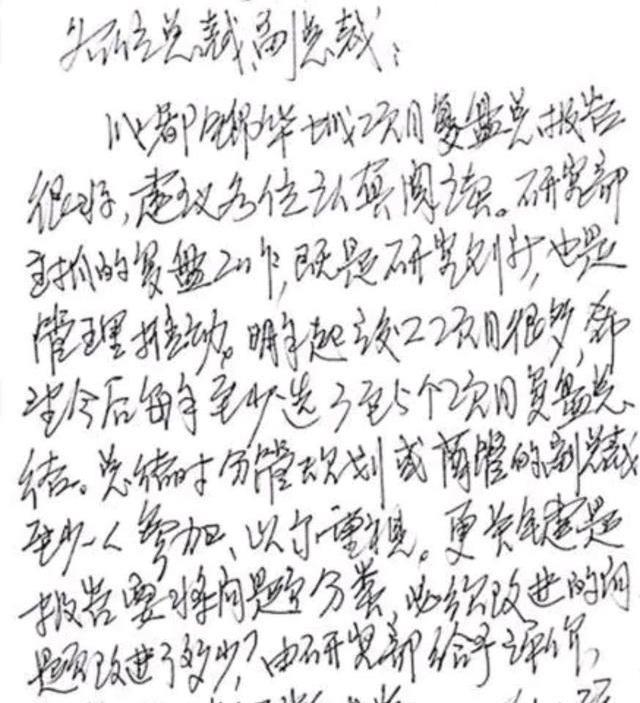 各位总裁、副总裁：
成都锦华城项目复盘总报告
很好，建议各位认真阅读。研究部
主抓的复盘工作，既是研究创新，也是
管理推动。明年起交工项目很多，希
望今后每年至少选3至5个项目复盘总
结。总结时分管规划或商管的副总裁
至少一人参加，以示重视。更关键是
报告要将问题分类，必须改进的问
题改进了多少？由研究部给予评价。